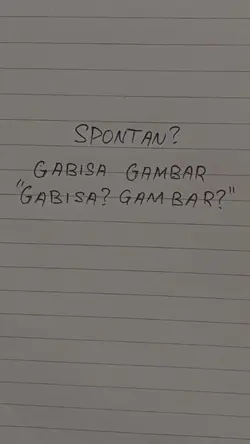 SPONTAN?
GABISA GAMBAR
"GABISA? GAMBAR?"